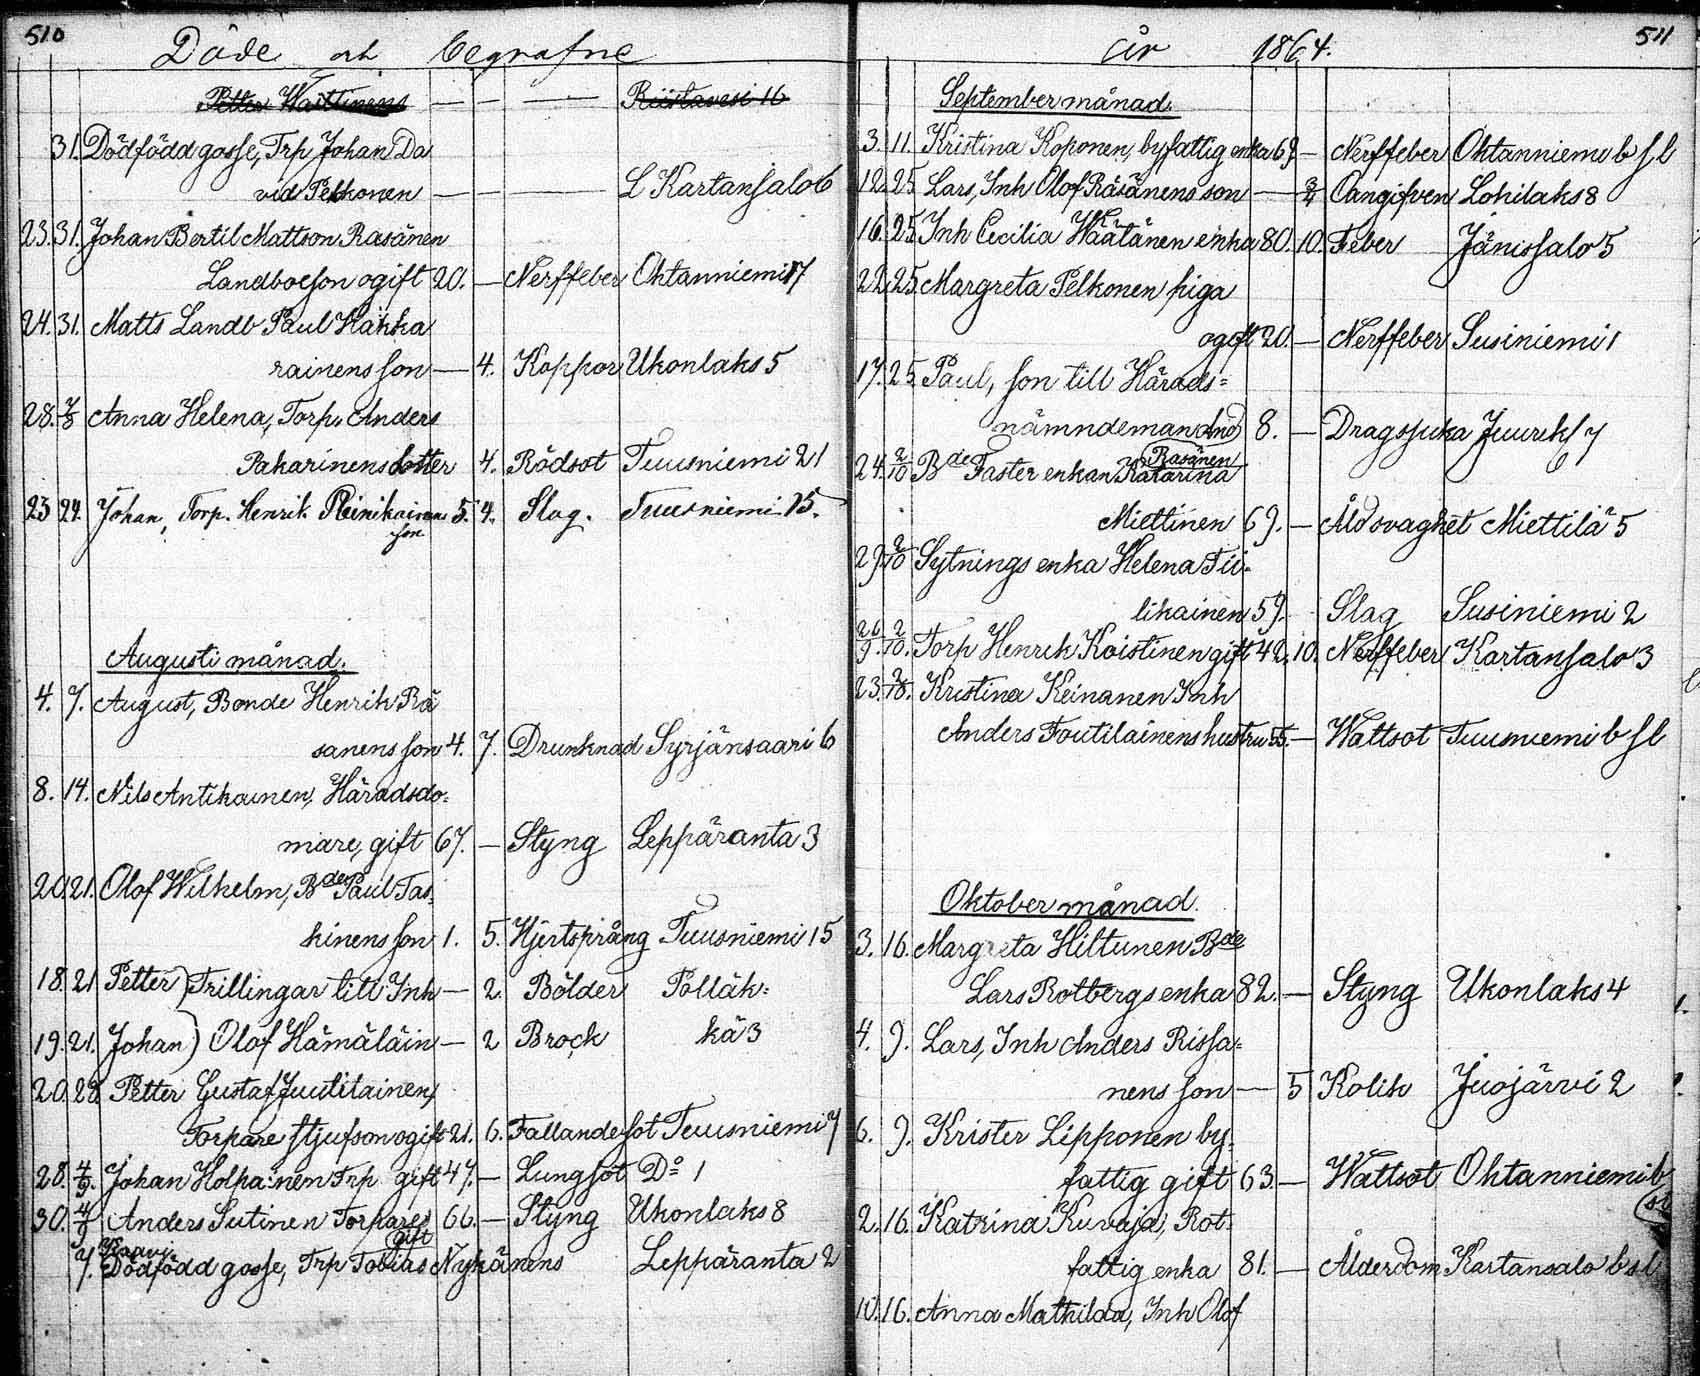 510
Döde och begrafne
Petter Warttinens — — — Riistavesi 16
31. Dödfödd gosse, Trp Johan Da
vid Pekkonen — — — L Kartansalo 6
23. 31. Johan Bertil Mattson Rasänen
Landboeson ogift 20. — Nerffeber Ohtanniemi 17
24. 31. Matts Landb Paul Hakka
rainens son — 4. Koppor Ukonlaks 5
28. 7/8 Anna Helena, Torp. Anders
Pakarinens dotter 4. Rödsot Tuusniemi 21
23 24. Johan, Torp. Henrik Reinikainens 5. 4. Slag. Tuusniemi 15.
son
Augusti månad.
4. 7. August, Bonde Henrik Rä
sänens son 4. 7. Drunknad Syrjänsaari 6
8. 14. Nils Antikainen, Häradsdo=
mare, gift 67. — Styng Leppäranta 3
20. 21. Olof Wilhelm, Bden Paul Tas
kinens son 1. 5. Hjertsprång Tuusniemi 15
18. 21 Petter ) Trillingar till Inh — 2. Bölder Pölläk=
19. 21. Johan ) Olof Hämäläin — 2 Brock kä 3
20. 28 Petter Gustaf Juutilainen,
Torpare stjufson ogift 21. 6. Fallandesot Tuusniemi 7
28. 4/9. Johan Holpainen Trp gift 47. — Lungsot Do 1
30. 4/9 Anders Sutinen Torpare 66. — Styng Ukonlaks 8
gift
Kaavi
7. Dödfödd gosse, Trp Tobias Nykänens Leppäranta 2
år 1864.
511
September månad.
3. 11. Kristina Koponen, byfattig enka 69 — Nerffeber Ohtanniemi b sl
12. 25. Lars, Inh Olof Räsänens son — 3/4 Oangifven Lohilaks 8
16. 25. Inh Cecilia Wäätänen enka 80. 10. Feber Jänissalo 5
22. 25. Margreta Pelkonen piga
ogift 20. — Nerffeber Susiniemi 1
17. 25. Paul, son till Härads=
nämndeman And 8. — Dragsjuka Juurik 7
Rasänen
24. 2/10 Bde Faster enkan Katarina
Miettinen 69. — Åldsvaghet Miettilä 5
29. 2/10 Sytnings enka Helena Tii=
likainen 59. Slag Susiniemi 2
26/9. 2/10. Torp Henrik Koistinen gift 42. 10. Nerffeber Kartansalo 3
23. 2/10. Kristina Keinanen Inh
Anders Foutilainens hustru 55. — Wattsot Tuusniemi b sl
Oktober månad.
3. 16. Margreta Hiltunen Bde
Lars Rotbergs enka 82. — Styng Ukonlaks 4
4. 9. Lars, Inh Anders Rissa=
nens son — 5 Kolik Juojärvi 2
6. 9. Krister Lipponen by=
fattig gift 63. — Wattsot Ohtanniemi b
sl
2. 16. Katrina Kuvaja, Rot=
fattig enka 81. — Ålderdom Kartansalo b sl
10. 16. Anna Mathilda, Inh Olof